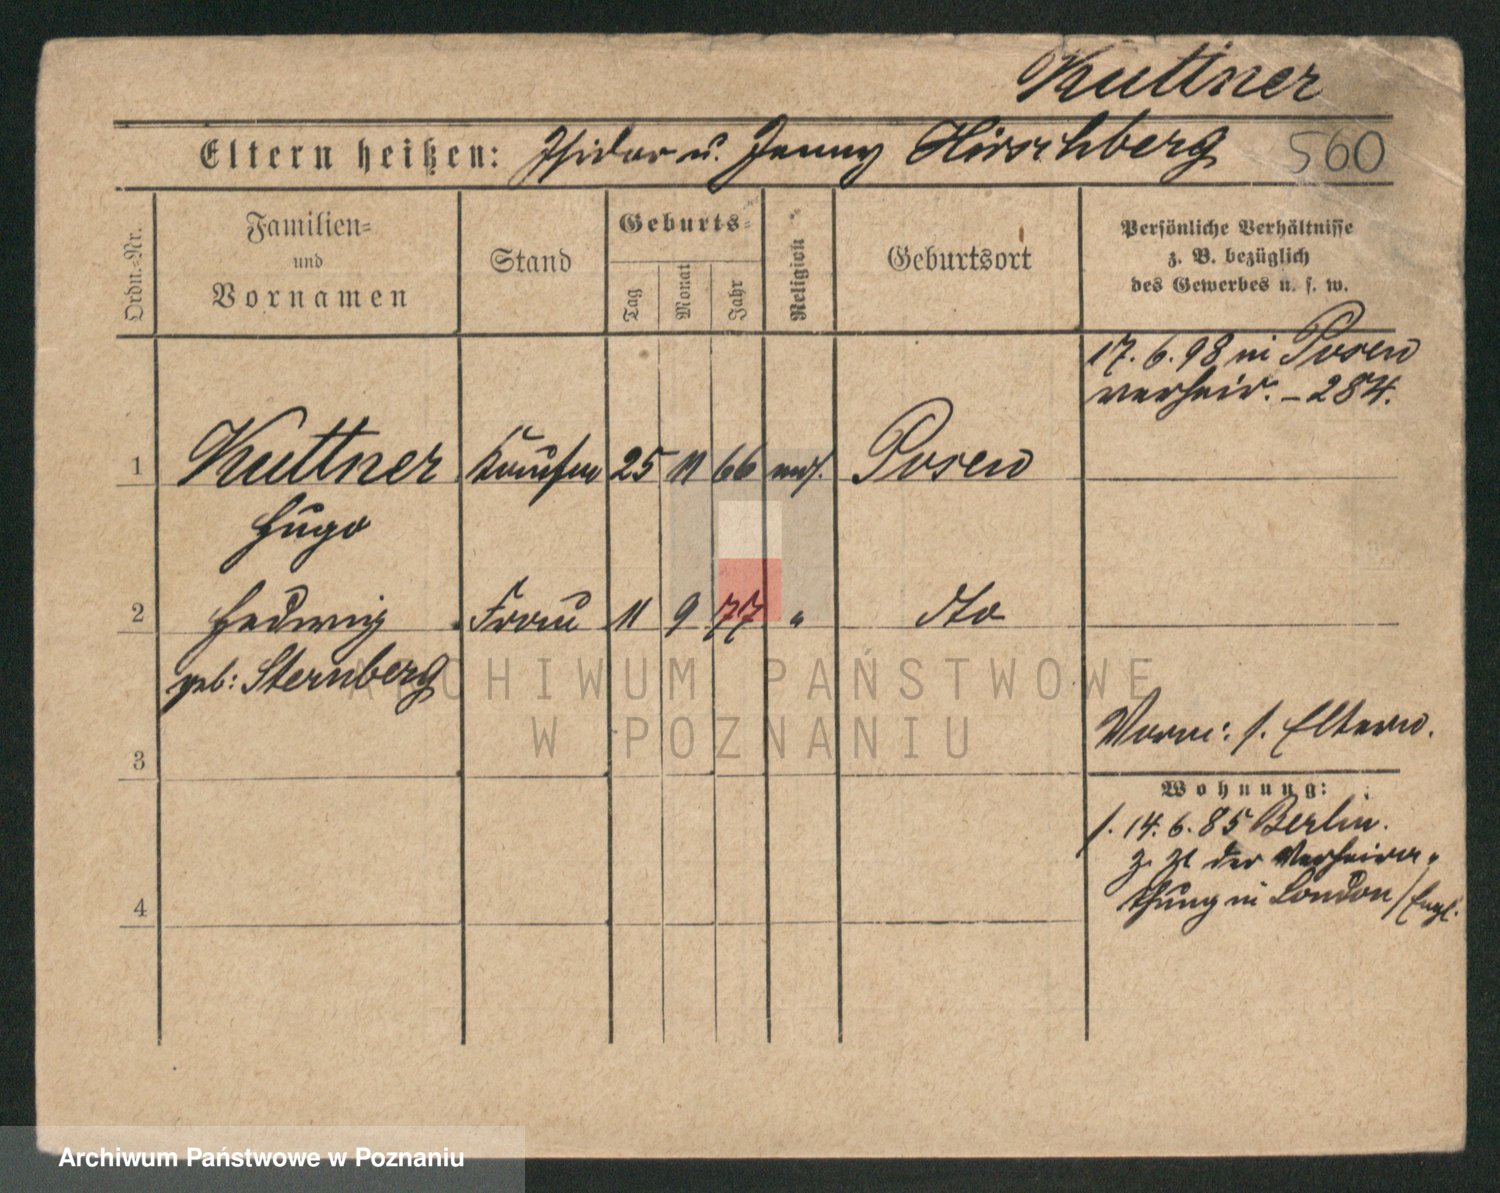 Kuttner
Eltern heißen: Isidor u. Jenny Hirschberg 560
Ordn.-Nr.
Familien-
und
Vornamen
Stand
Geburts-
Tag
Monat
Jahr
Religion
Geburtsort
Persönliche Verhältnisse
z. B. bezüglich
des Gewerbes u. s. w.
17. 6. 98 in Posen
verheir. - 284.
1 Kuttner Kaufm 25 11 66 mos. Posen
Hugo
2 Hedwig Frau 11 9 77 " dto
geb: Sternberg
ARCHIWUM PAŃSTWOWE
W POZNANIU
Vorm: s. Eltern.
3
Wohnung:
s. 14. 6. 85 Berlin.
z. Zt der Verheira-
thung in London / Engl.
4
Archiwum Państwowe w Poznaniu